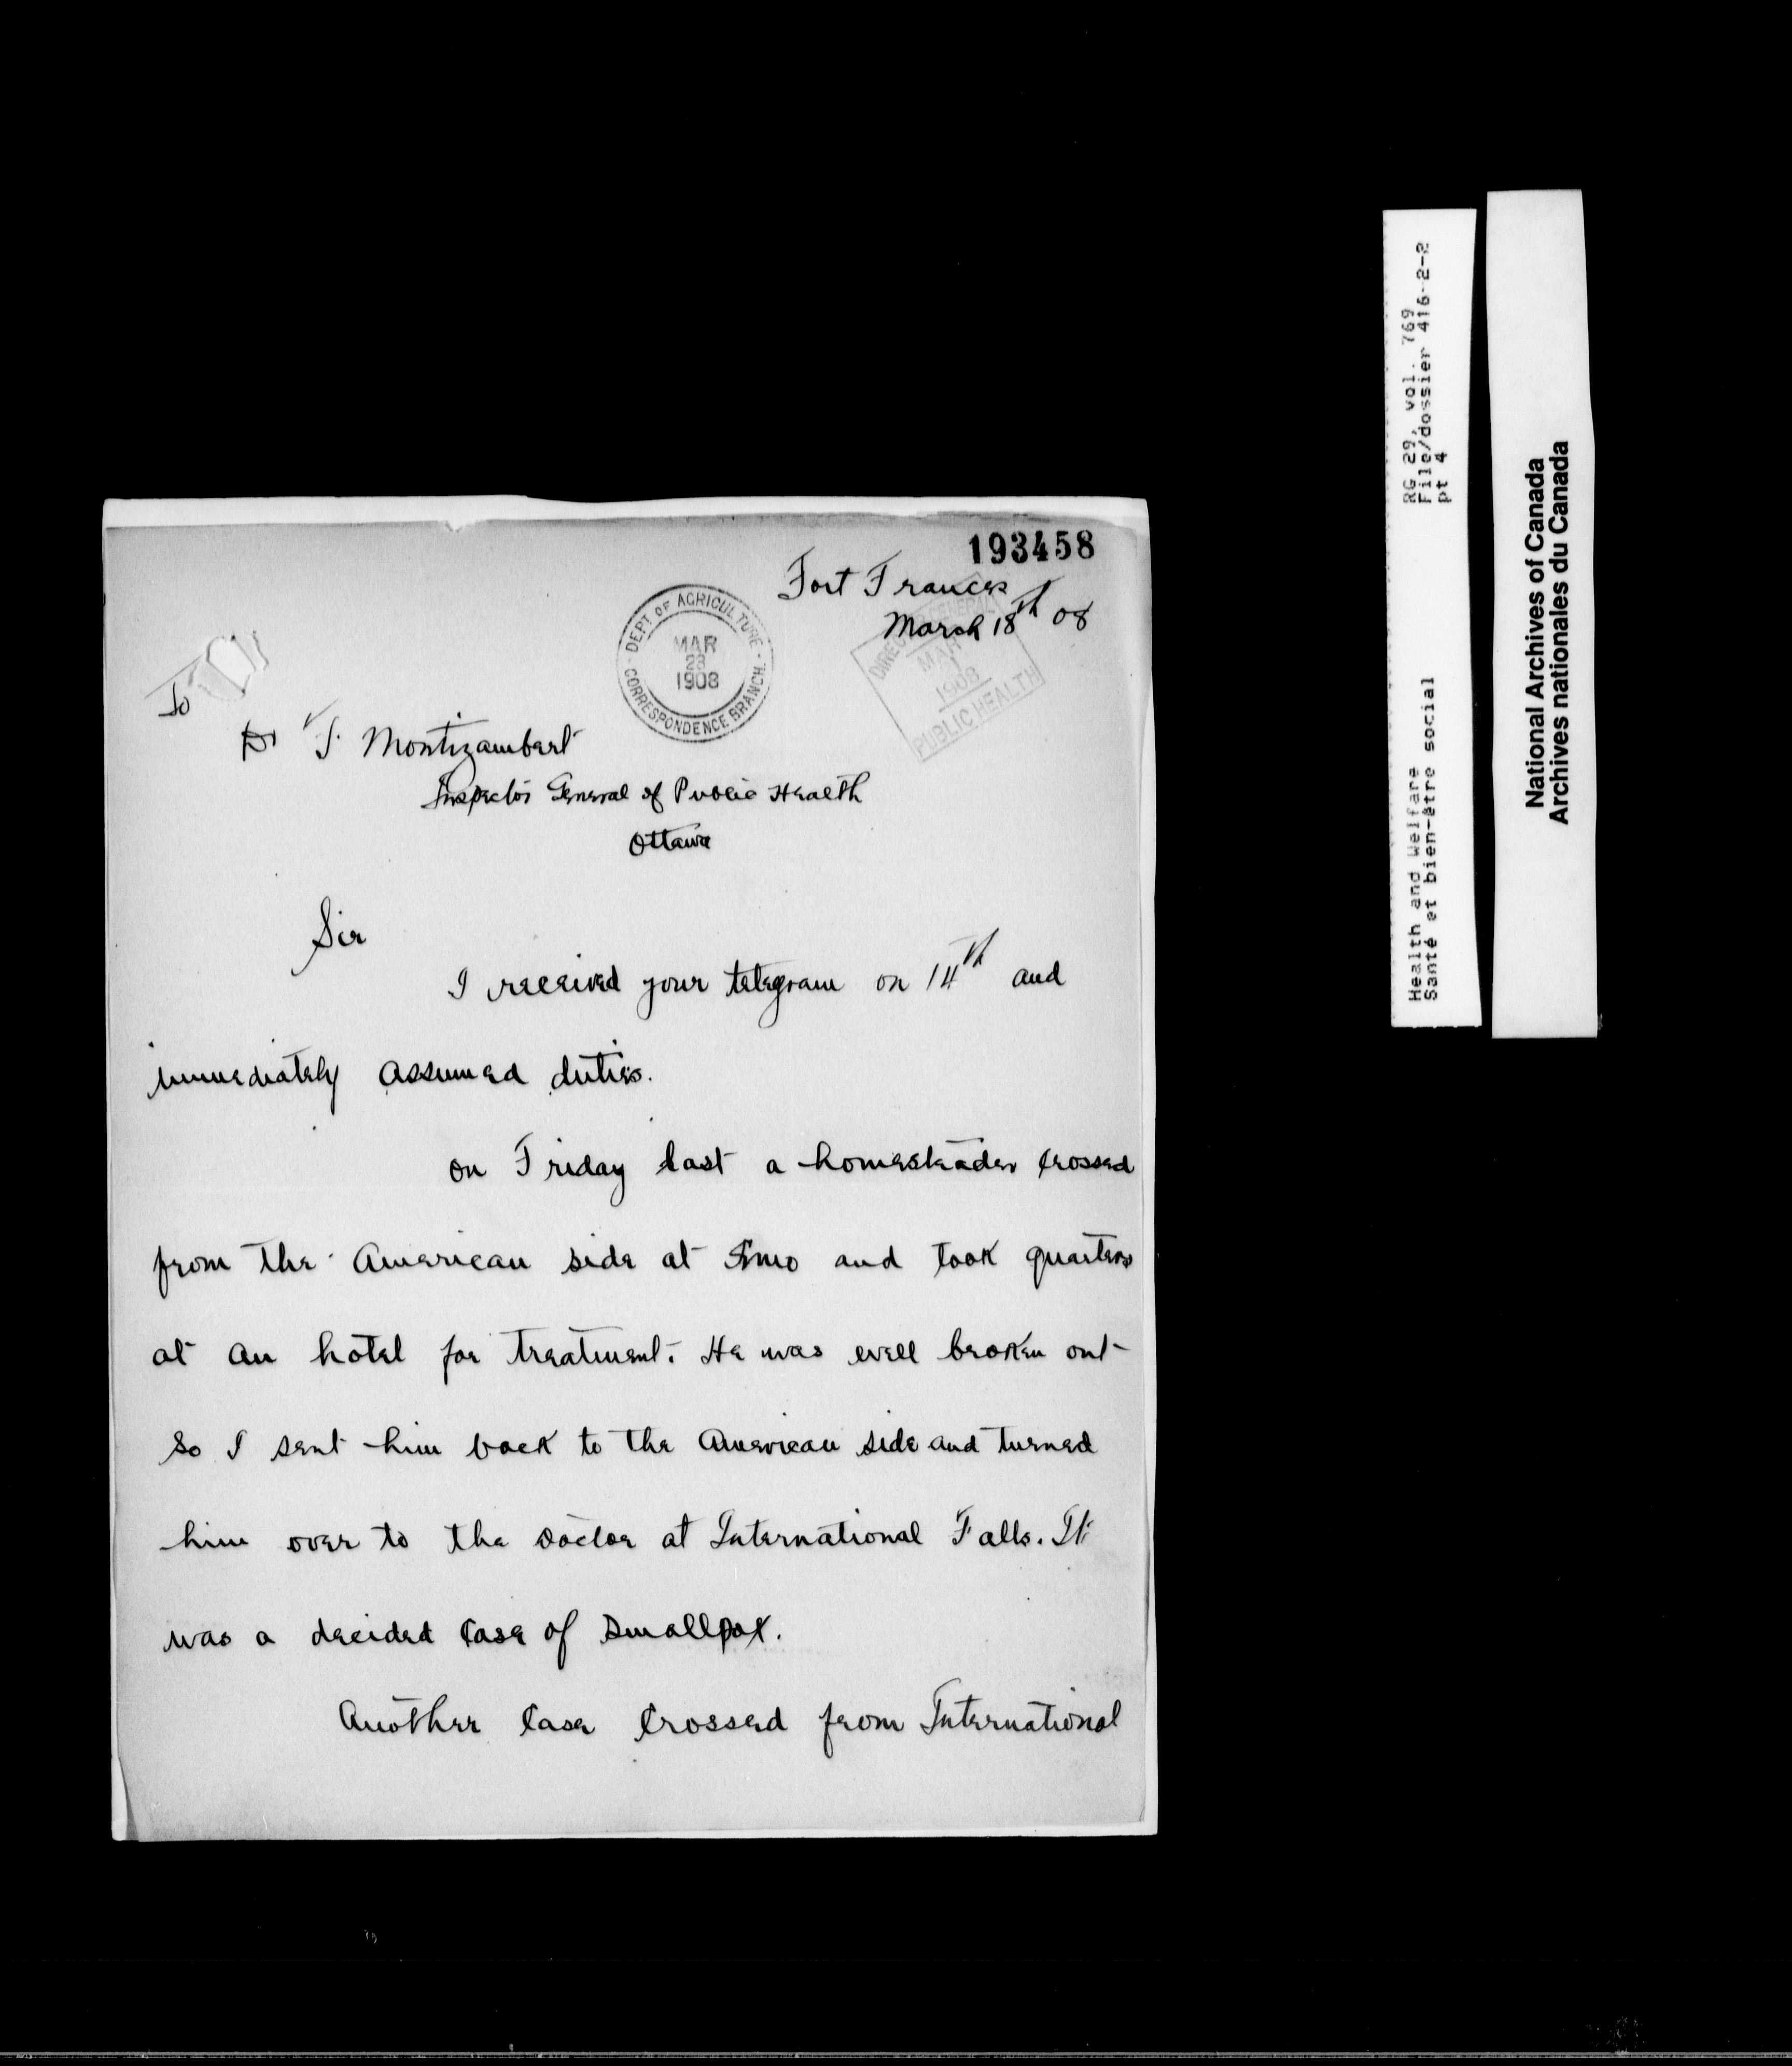 193458
Fort Frances
March 18th 08
DEPT OF AGRICULTURE
MAR
23
1908
CORRESPONDENCE BRANCH.
MAR
1908
PUBLIC HEALTH
To
Dr F. Montizambert
Inspector General of Public Health
Ottawa
Sir
I received your telegram on 14th and
immediately assumed duties.
On Friday last a homesteader crossed
from the American side at Emo and took quarters
at an hotel for treatment. He was well broken out
so I sent him back to the American side and turned
him over to the Doctor at International Falls. It
was a decided case of smallpox.
Another case crossed from International
RG 29, vol. 769
File/dossier 416-2-2
pt 4
Health and Welfare
Santé et bien-être social
National Archives of Canada
Archives nationales du Canada